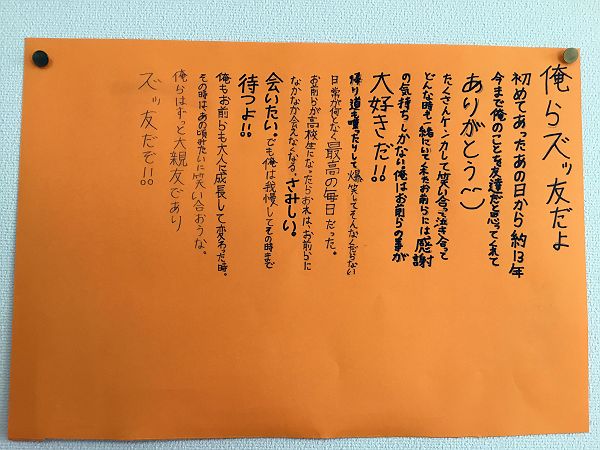 俺らズッ友だよ
初めてあったあの日から約13年
今まで俺のことを友達だと思ってくれて
ありがとう
たくさんケンカして笑い合って泣き合って
どんな時も一緒にいてくれたお前らには感謝
の気持ちしかない俺はお前らの事が
大好きだ!!
帰り道も喋ったりして爆笑してそんなくだらない
日常が何となく最高の毎日だった。
お前らが高校生になったらおれは、お前らに
なかなか会えなくなる。さみしい。
会いたい。でも俺は我慢してその時まで
待つよ!!
俺もお前らも大人に成長して変わった時。
その時は、あの頃みたいに笑い合おうな。
俺らはずっと大親友であり
ズッ友だぞ!!